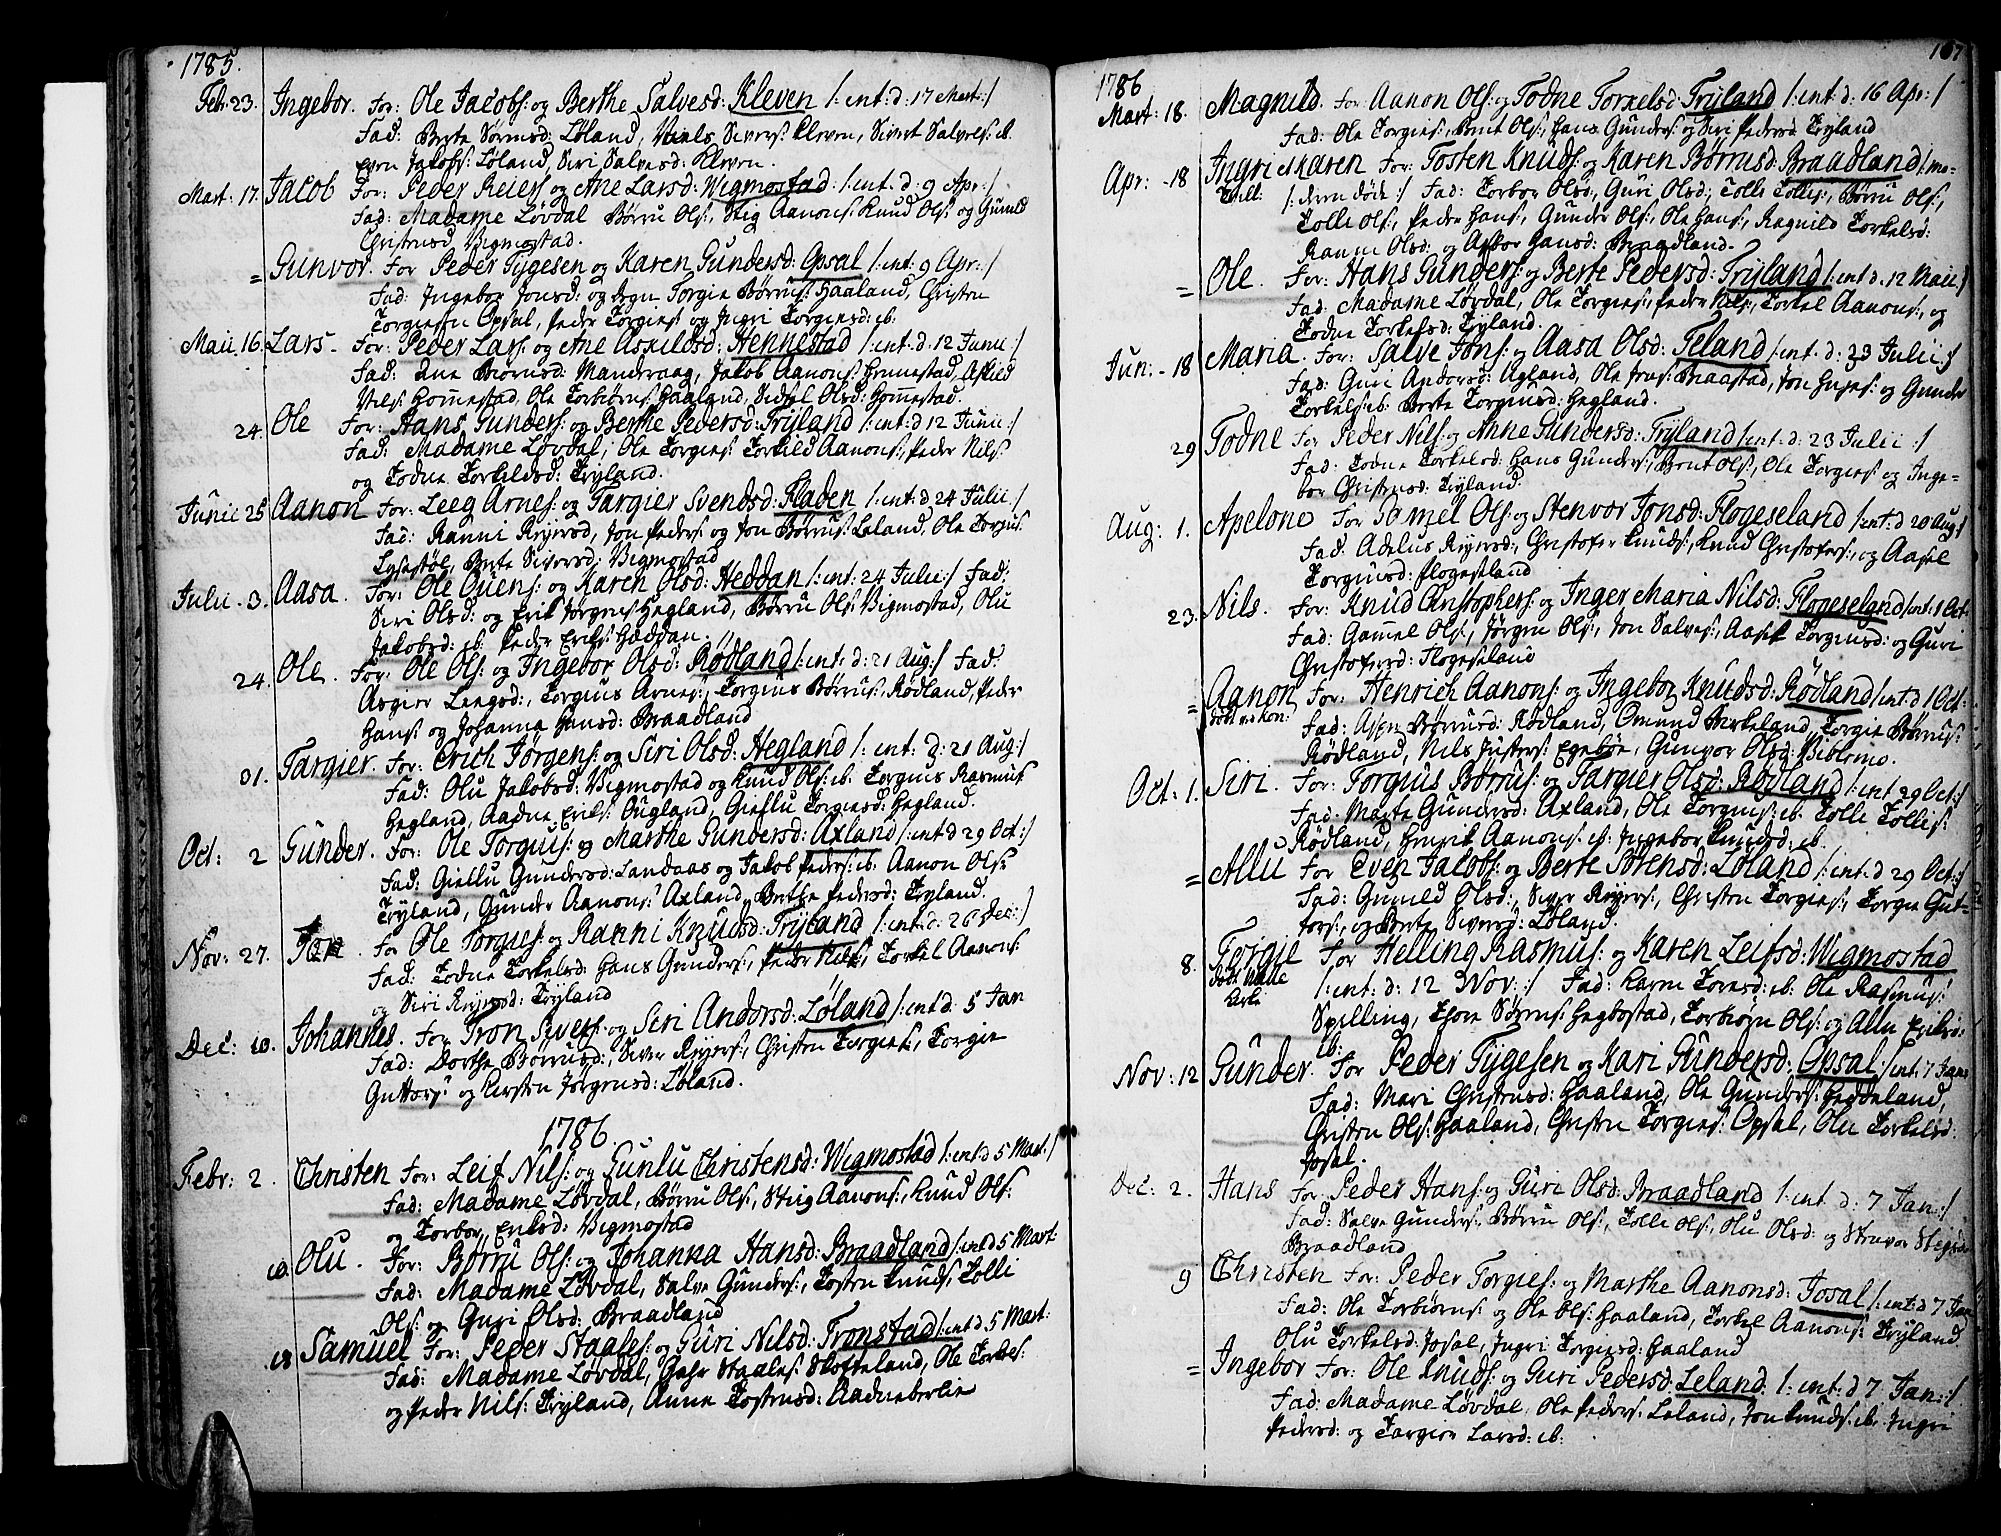 1785.
Feb: 23. Ingebor. For: Ole Jacobs: og Berthe Salvesd: Kleven /: int: d: 17 Mart: /
Fad: Berte Sørensd: Løland, Niels Sivers: Kleven, Sivert Salves: ib.
Even Jakobs: Løland, Siri Salvesd: Kleven.
Mart: 17. Jacob For: Peder Reiers: og Ane Larsd: Wigmostad /: int: d: 9 Apr: /
Fad: Madame Løvdal, Børru Ols:, Stig Aanons: Knud Ols: og Gunild
Christensd, Vigmostad.
= Gunvor. For Peder Tygesen og Karen Gundersd: Opsal /: int: 9 Apr: /
Fad: Ingebor Jonsd: og Torgie Børrus: Haaland, Christen
Torgiesen Opsal, Peder Torgies: og Ingri Torgiesd: ib:
Maii 16. Lars - For: Peder Lars: og Ane Asxildsd: Hennestad /: int: d: 12 Junii: /
Fad: Børrusd: Jakob Aanons: Askild
Nils: Ole Torbiørns: Haaland, Sidsel Olsd:
24. Ole For: Hans Gunders: og Berthe Pedersd: Tryland /: int: d 12 Junii: /
Fad: Madame Løvdal, Ole Torgies: Torkild Aanons:, Peder Nils:
og Todne Torkeldsd: Tryland.
Junii 25 Aanon For: Leeg Arnes: og Targier Svendsd: Fladen /: int: d 24 Julii: /
Fad: Ranni Reyersd, Jon Peders: og Jon Børrus: Leland, Ole Torgius:
Lysestøl, Berte Siversd: Vigmostad
Julii. 3. Aasa. For: Ole Ouens: og Karen Olsd: Heddan /: int: 24 Julii: / Fad:
Siri Olsd: og Erik Jørgens: Hegland, Børru Ols: Vigmostad, Olu
Jakobsd: ib. Peder Eriks: Heddan.
24. Ole. For: Ole Ols: og Ingebor Olsd: Rødland /: int: d: 21 Aug: / Fad:
Asgier Leegsd:, Torgius Arnes:, Torgius Børrus: Rødland, Peder
Hans: og Johanna Hansd: Braadland
31. Targier. For: Erich Jørgens: og Siri Olsd: Hegland /: int: d: 21 Aug: /
Fad: Olu Jakobsd: Vigmostad og Knud Ols: ib. Torgius Rasmus:
Hegland, Aadne Eriks: Ougland, Giellu Torgiesd: Hegland.
Oct: 2 Gunder. For: Ole Torgius: og Marthe Gundersd: Axland /: int d 29 Oct: /
Fad: Giellu Gundersd: Landaas og Jakob Peders: ib. Aanon Ols:
Tryland, Gunder Aanons: Axland, Berthe Pedersd: Tryland.
Nov: 27. For Ole Torgies: og Ranni Knudsd: Tryland /: int: d: 26 Dec: /
Fad: Todne Torkelsd: Hans Gunders:, Peder Nils:, Torkel Aanons:
og Siri Reyersd: Tryland
Dec: 10. Johannes. For Tron Sivers: og Siri Andorsd: Løland /: int d: 5 Jan
Fad: Dorthe Børrusd:, Siver Reyers:, Christen Torgies:, Torgie
Guttors: og Kirsten Jørgensd: Løland.
1786.
Febr: 2. Christen For: Leif Nils: og Gunlu Christensd: Wigmostad /: int d 5 Mart: /
Fad: Madame Løvdal, Børru Ols:, Stig Aanons:, Knud Ols:
og Torbor Eriksd: Vigmostad
10. Olu. For: Børru Ols: og Johanna Hansd: Braadland /: int d 5 Mart:
Fad: Madame Løvdal, Salve Gunders:, Tosten Knuds: Tolli
Ols: og Guri Olsd: Braadland
18 Samuel For: Peder Staales: og Guri Nilsd: Tronstad /: int d 5 Mart:
Fad: Madame Løvdal, Staales: Skofteland, Ole Torkes:
og Peder Nils: Tryland, Anne Tostensd: Aadneberlie
107
1786
Mart: 18. Magnild. For: Aanon Ols: og Todne Torkelsd: Tryland /: int: d: 16 Apr: /
Fad: Ole Torgies:, Bent Ols:, Hans Gunders: og Siri Pedersd: Tryland
Apr: - 18 Ingri Maren For: Tosten Knuds: og Karen Børrusd: Braadland /
/: deren døde: / Fad: Torbor Olsd:, Guri Olsd:, Tolle Tollis:, Børru Ols:,
Tolli Ols:, Peder Hans:, Gunder Ols:, Ole Hans:, Ragnild Torkelsd:
Ranne Olsd: og Hansd: Braadland.
= Ole. For: Hans Gunders: og Berte Pedersd: Tryland /: int d. 12 Maii: /
Fad: Madame Løvdal, Ole Torgies:, Peder Nils:, Torkel Aanons:, og
Todne Torkelsd: Tryland.
Jun: - 18 Maria. For: Salve Jons: og Aasa Olsd: Teland /: int: d: 23 Julii: /
Fad: Guri Andorsd: Agland, Ole Braastad, Jon og Gunder
Torkels: ib: Berte Torgiusd: Hegland.
29 Todne For Peder Nils: og Anne Gundersd: Tryland /: int: d: 23 Julii: /
Fad: Todne Torkelsd: Hans Gunders:, Bent Ols:, Ole Torgies: og Inge-
bor Christensd: Tryland
Aug: 1. Apelone For Gamel Ols: og Stenvor Jonsd: Flogeseland /: int: d 20 Aug: /
Fad: Adelus Reyersd:, Christofer Knuds:, Knud Christofers:, og Aasel
Torgiusd: Flogeseland
23. Nils. For: Knud Christophers: og Inger Maria Nilsd: Flogeseland /: int: 1 Oct:
Fad: Gammel Ols:, Jørgen Ols:, Jon Salves:, Aasel Torgiusd: og Guri
Christofersd: Flogeseland
= Aanon For: Henrich Aanons: og Ingebor Knudsd: Rødland / int: d 1 Oct:
Fad: Børrusd: Rødland, Omund Birkeland, Torgie Børrus:
Rødland, Nils Justers: Egebøe, Gunvor Olsd: Biblemo.
Oct: 1. Siri. For: Torgius Børrus: og Targier Olsd: Rødland /: int 29 Oct: /
Fad: Marte Gundersd: Axland, Ole Torgius: ib. Tolli Tollis:
Rødland, Henrik Aanons: ib: Ingebor Knudsd: ib.
= Allu For Even Jacobs: og Berte Sørensd: Løland /: int: d 29 Oct: /
Fad: Gunild Olsd:, Siver Reyers:, Christen Torgies:, Torgie Gut-
tors:, og Berte Siversd: Løland.
8. Torgie For Helling Rasmus: og Karen Leifsd: Wigmostad
/: int: d: 12 Nov: / Fad: Karen Toresd: ib. Ole Rasmus:
Spilling, Thore Sørens: Hegbostad, Torbiørn Ols: og Allu Eriksd:
ib:
Nov: 12 Gunder. For Peder Tygesen og Kari Gundersd: Opsal /: int: 7 Jan:
Fad: Mari Christensd: Haaland, Ole Gunders: Heddeland,
Christen Ols: Haaland, Christen Torgies: Opsal, Olu Torkelsd:
Josal.
Dec: 2. Hans For Peder Hans: og Guri Olsd: Braadland /: int d: 7 Jan: /
Fad: Salve Gunders:, Børru Ols:, Tolli Ols:, Olu Olsd: og
Braadland
9 Christen For: Peder Torgies: og Marthe Aanonsd: Josal /: int: d 7 Jan
Fad: Ole Torbiørns: og Ole Ols: Haaland, Torkel Aanons: Tryland
Olu Torkelsd: Josal, Ingri Torgiesd: Haaland
= Ingebor For: Ole Knuds: og Guri Pedersd: Leland. /: int: d 7 Jan: /
Fad: Madame Løvdal, Ole Peders: Leland, Jon Knuds: ib. Ingri
Pedersd: og Targier Larsd: ib: